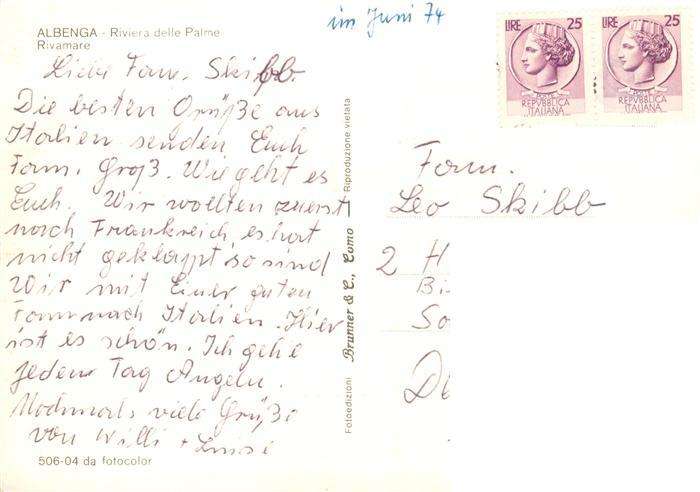 ALBENGA - Riviera delle Palme
Rivamare
im Juni 74
LIRE 25
REPVBBLICA
ITALIANA
LIRE 25
REPVBBLICA
ITALIANA
Liebe Fam. Skibb
Die besten Grüße aus
Italien senden Euch
Fam. Groß. Wie geht es
Euch. Wir wollten zuerst
nach Frankreich, es hat
nicht geklappt, so sind
Wir mit Einer guten
Fam nach Italien. Hier
ist es schön. Ich gehe
jeden Tag Angeln.
Nochmals viele Grüße
von Willi + Luise
506-04 da fotocolor
Fotoedizioni Brunner & C., Como Riproduzione vietata
Fam.
Leo Skibb
2 H
Bi
So
De